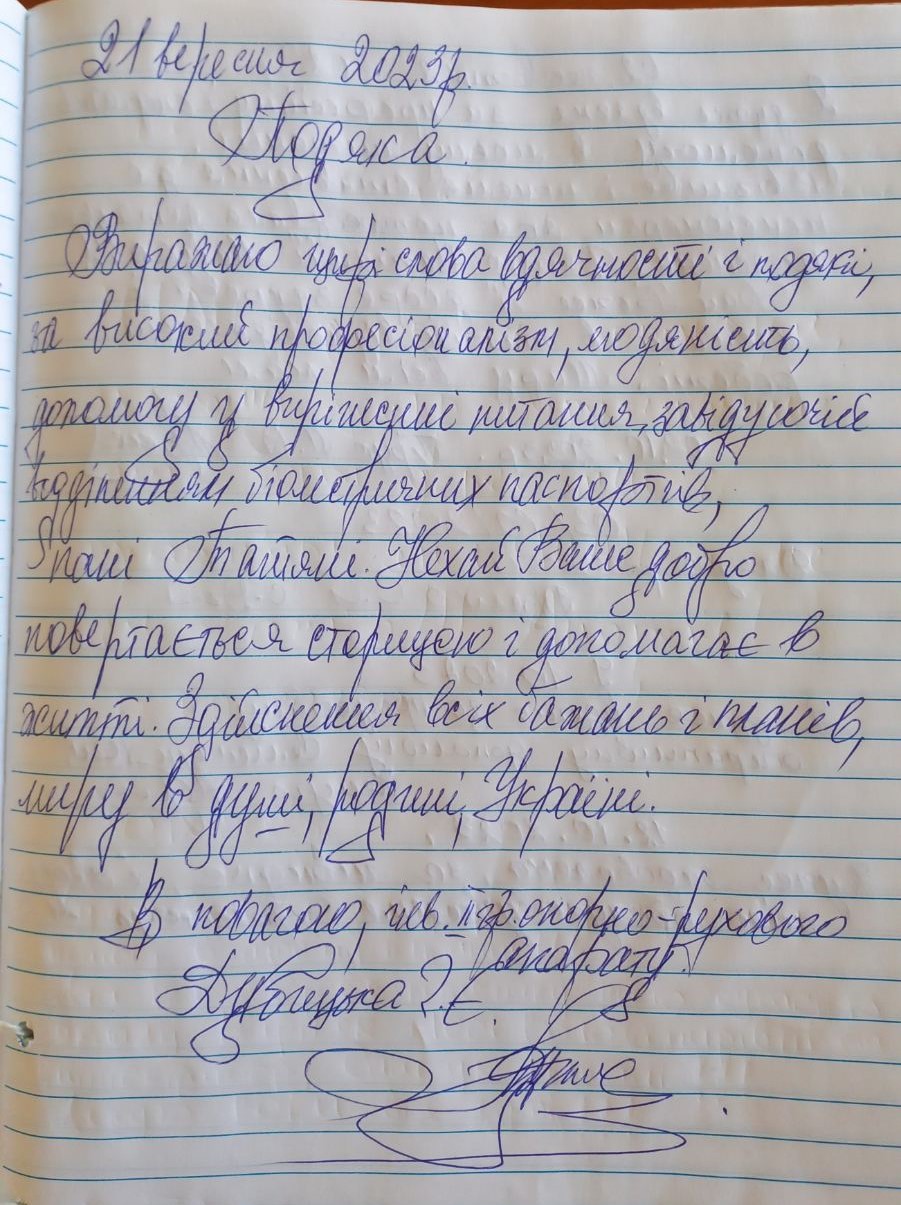 21 вересня 2023р.
Подяка.
Виражаю щирі слова вдячності і подяки,
за високий професіоналізм, людяність,
допомогу у вирішенні питання, завідуючій
відділенням біометричних паспортів,
пані Татяні. Нехай Ваше добро
повертається сторицею і допомагає в
житті. Здійснення всіх бажань і планів,
миру в душі, родині, Україні.
З повагою, інв. II гр. опорно-рухового
апарату.
Дубицька Є.